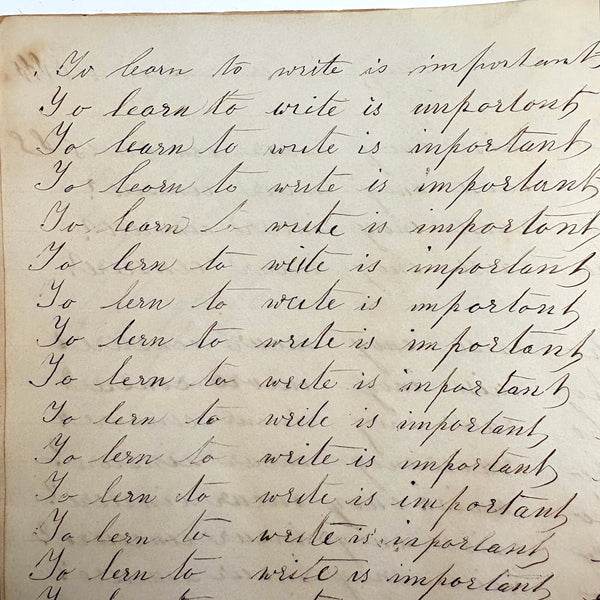 To learn to write is important
To learn to write is important
To learn to write is inportant
To learn to write is important
To learn to write is important
To lern to write is important
To lern to write is important
To lern to write is important
To lern to write is inportant
To lern to write is important
To lern to write is important
To lern to write is important
To lern to write is inportant
To lern to write is important